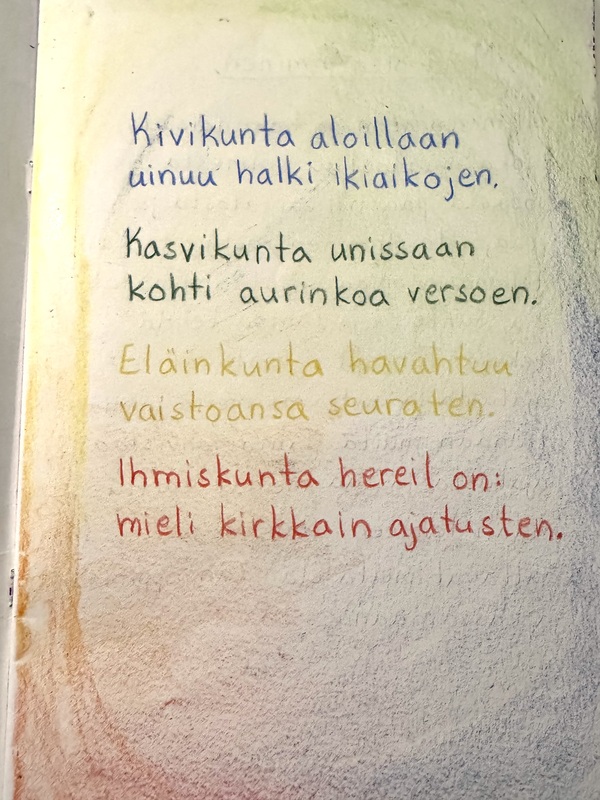 Kivikunta aloillaan
uinuu halki ikiaikojen.
Kasvikunta unissaan
kohti aurinkoa versoen.
Eläinkunta havahtuu
vaistoansa seuraten.
Ihmiskunta hereil on:
mieli kirkkain ajatusten.